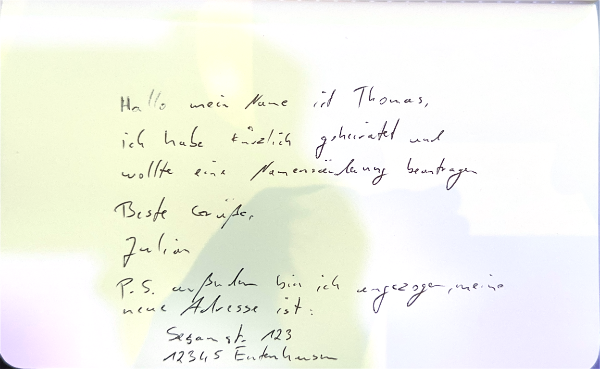 Hallo mein Name ist Thomas,
ich habe kürzlich geheiratet und
wollte eine Namensänderung beantragen
Beste Grüße,
Julian
P.S. außerdem bin ich umgezogen, meine
neue Adresse ist:
Sesamstr. 123
12345 Entenhausen